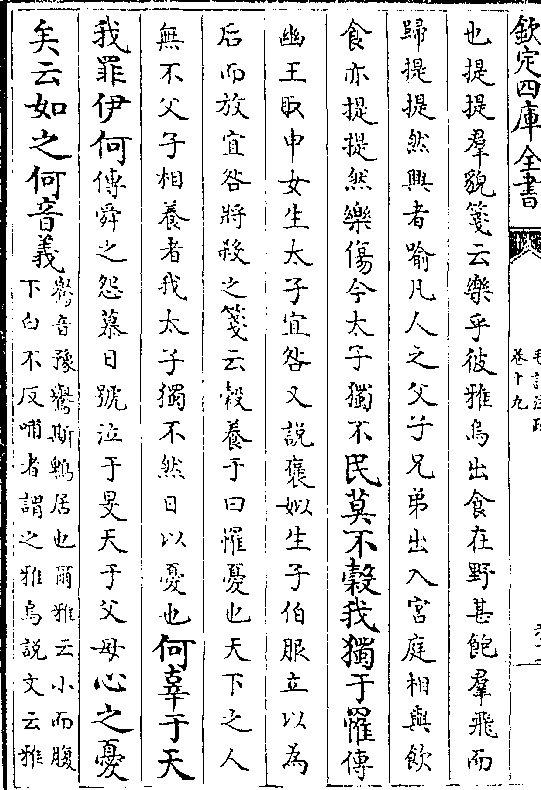 欽定四庫全書
毛詩注疏
卷十九
也提提羣貌箋云樂乎彼雅烏出食在野甚飽羣飛而
歸提提然興者喻凡人之父子兄弟出入宮庭相與飲
食亦提提然樂傷今太子獨不民莫不穀我獨于罹傳
幽王取申女生太子宜咎又說褒姒生子伯服立以為
后而放宜咎將殺之箋云穀養于曰罹憂也天下之人
無不父子相養者我太子獨不然日以憂也何辜于天
我罪伊何傳舜之怨慕日號泣于旻天于父母心之憂
矣云如之何音義
鸒音豫鸒斯鵯居也爾雅云小而腹
下白不反哺者謂之雅烏說文云雅